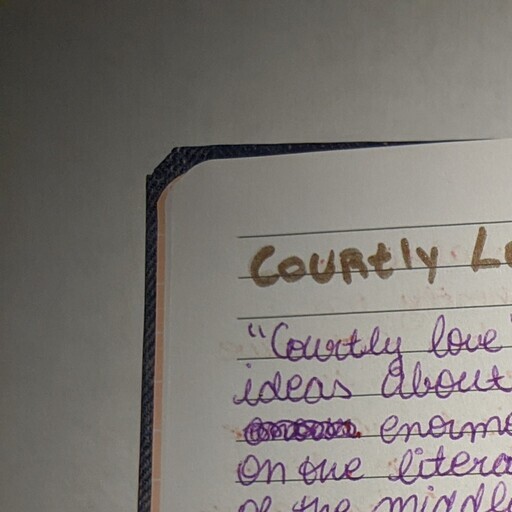 Courtly L
"Courtly love"
ideas about
enorm
on the litera
of the middl